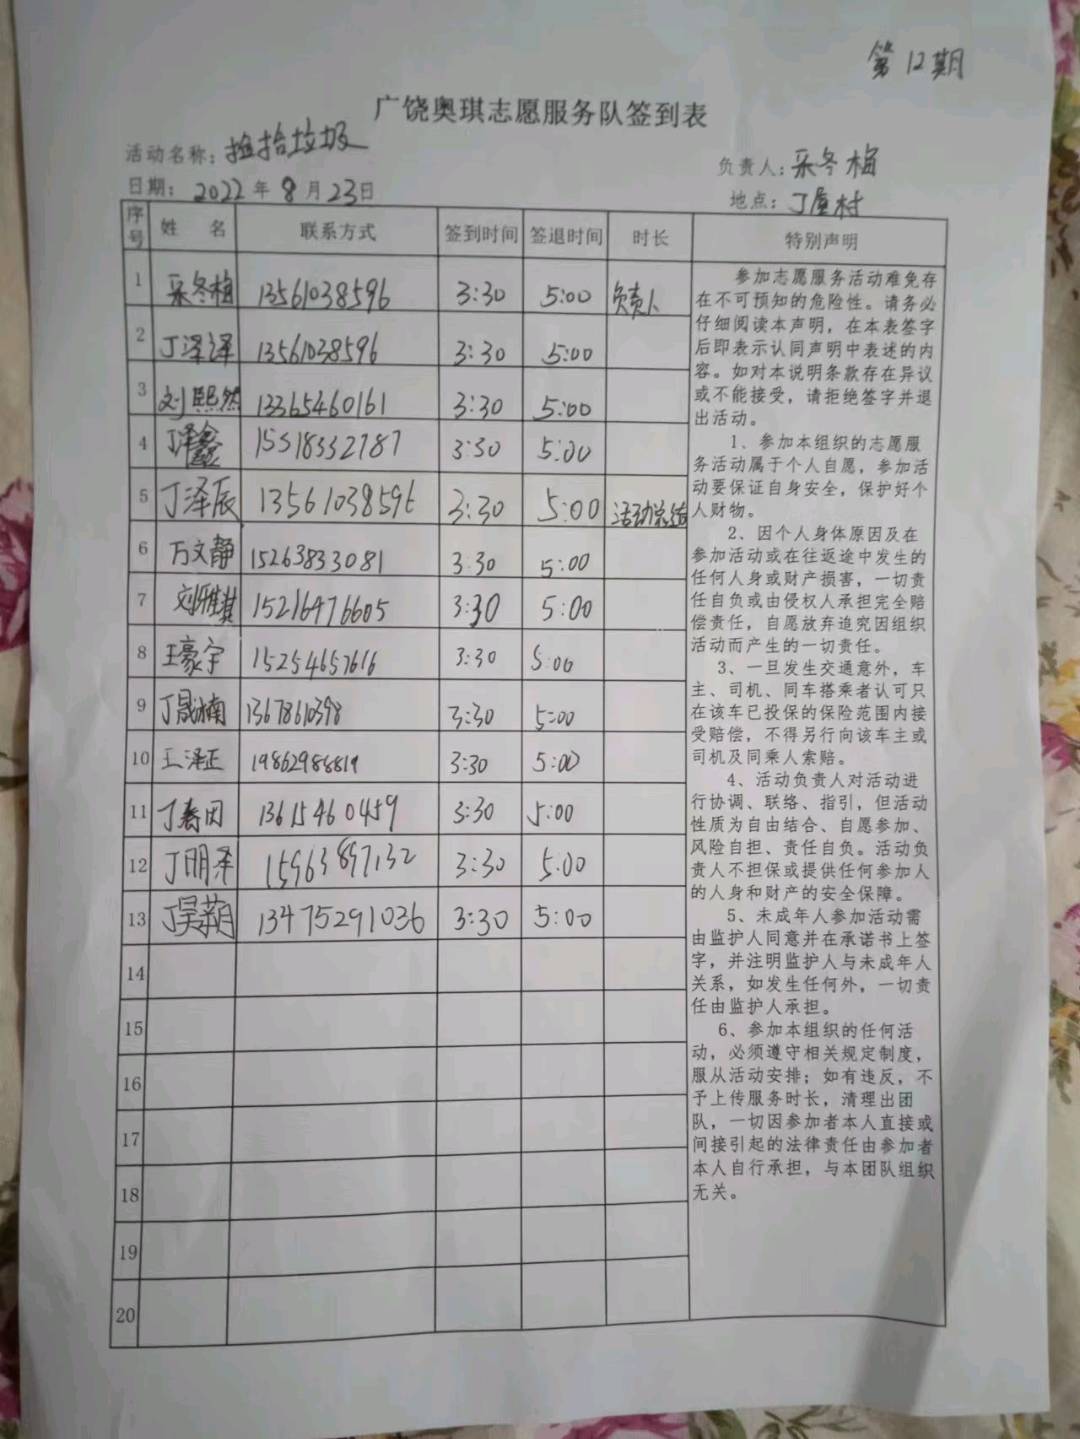 第12期
广饶奥琪志愿服务队签到表
活动名称：捡拾垃圾
负责人：采冬梅
日期：2022年8月23日
地点：丁屋村
序号 姓名 联系方式 签到时间 签退时间 时长 特别声明
1 采冬梅 13561038596 3:30 5:00 负责人
2 丁泽译 13561038596 3:30 5:00
3 刘熙然 13365460161 3:30 5:00
4 丁泽鑫 15318332787 3:30 5:00
5 丁泽辰 13561038596 3:30 5:00 活动总结
6 万文静 15263833081 3:30 5:00
7 刘雅其 15216476605 3:30 5:00
8 王豪宇 15254657616 3:30 5:00
9 丁晟楠 13678610398 3:30 5:00
10 王泽正 19862988819 3:30 5:00
11 丁春因 13615460459 3:30 5:00
12 丁明泽 15963897132 3:30 5:00
13 丁昊翔 13475291036 3:30 5:00
14
15
16
17
18
19
20
参加志愿服务活动难免存
在不可预知的危险性。请务必
仔细阅读本声明，在本表签字
后即表示认同声明中表述的内
容。如对本说明条款存在异议
或不能接受，请拒绝签字并退
出活动。
1、参加本组织的志愿服
务活动属于个人自愿，参加活
动要保证自身安全，保护好个
人财物。
2、因个人身体原因及在
参加活动或在往返途中发生的
任何人身或财产损害，一切责
任自负或由侵权人承担完全赔
偿责任，自愿放弃追究因组织
活动而产生的一切责任。
3、一旦发生交通意外，车
主、司机、同车搭乘者认可只
在该车已投保的保险范围内接
受赔偿，不得另行向该车主或
司机及同乘人索赔。
4、活动负责人对活动进
行协调、联络、指引，但活动
性质为自由结合、自愿参加、
风险自担、责任自负。活动负
责人不担保或提供任何参加人
的人身和财产的安全保障。
5、未成年人参加活动需
由监护人同意并在承诺书上签
字，并注明监护人与未成年人
关系，如发生任何外，一切责
任由监护人承担。
6、参加本组织的任何活
动，必须遵守相关规定制度，
服从活动安排；如有违反，不
予上传服务时长，清理出团
队，一切因参加者本人直接或
间接引起的法律责任由参加者
本人自行承担，与本团队组织
无关。